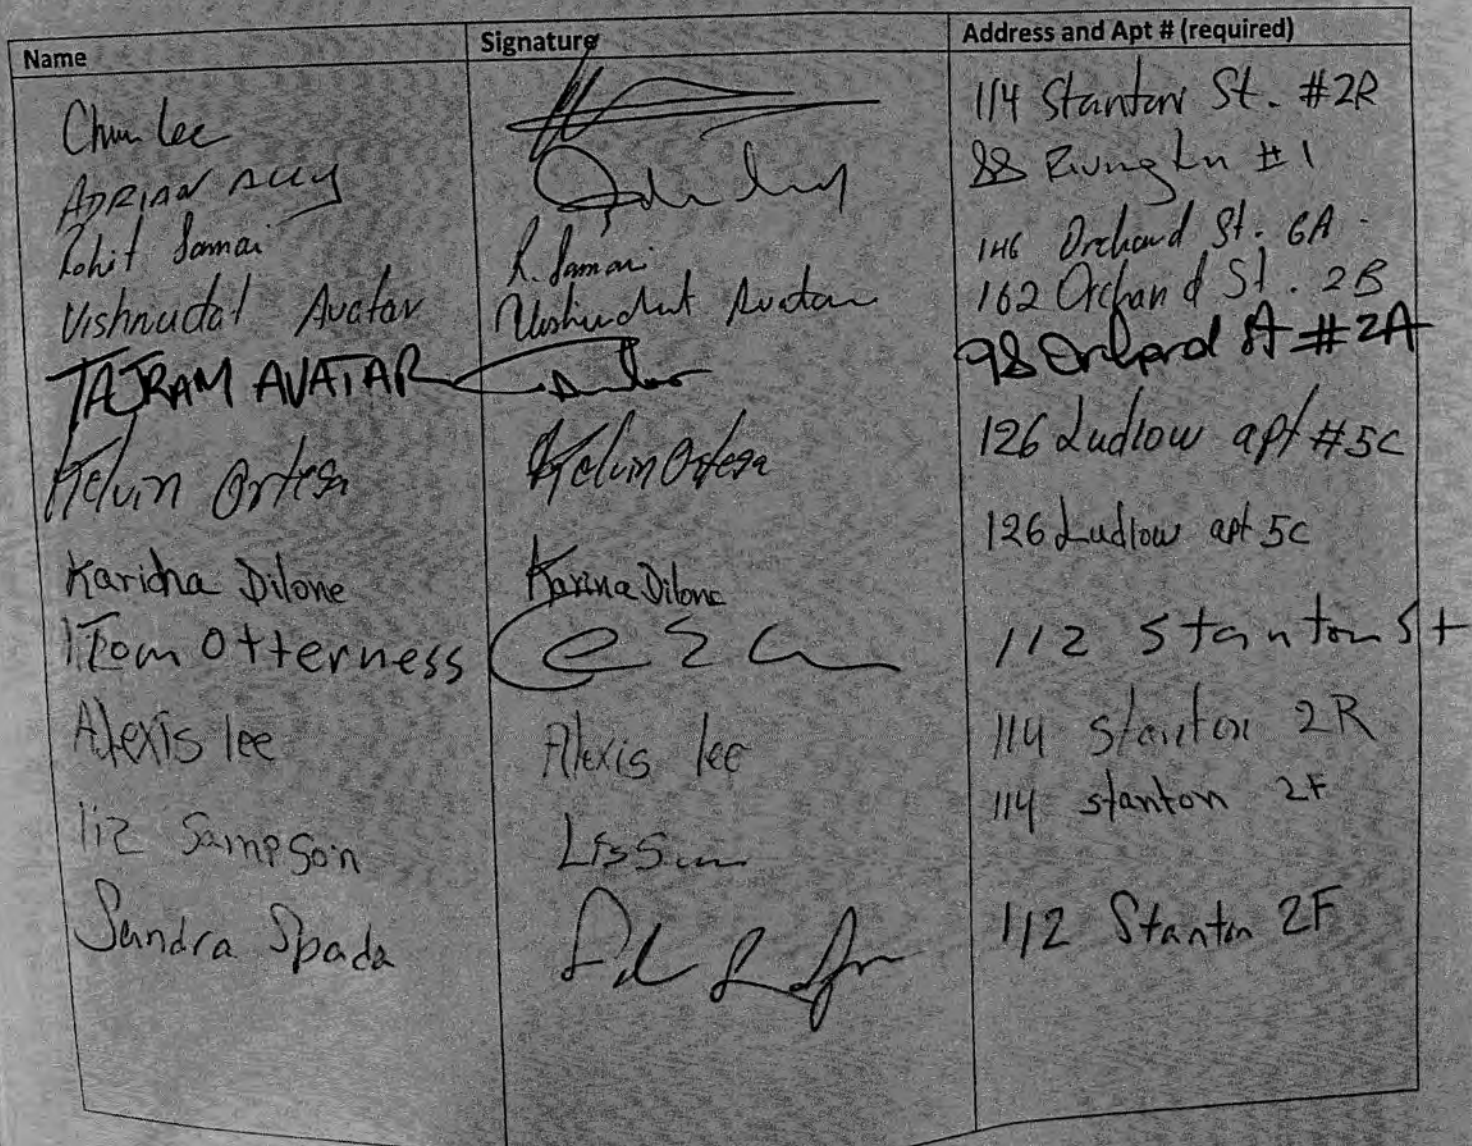 Name Signature Address and Apt # (required)
Chun Lee 114 Stanton St. #2R
ADRIAN ALLY 88 Rivington #1
Rohit Samai R. Samai 146 Orchard St. 6A
Vishnudat Avatar Vishnudat Avatar 162 Orchard St. 2B
TAJRAM AVATAR 98 Orchard St #2A
Kelvin Ortega Kelvin Ortega 126 Ludlow apt #5C
Karina Dilone Karina Dilone 126 Ludlow apt 5C
Tom Otterness 112 Stanton St
Alexis lee Alexis lee 114 Stanton 2R
liz Sampson 114 stanton 2F
Sandra Spada 112 Stanton 2F